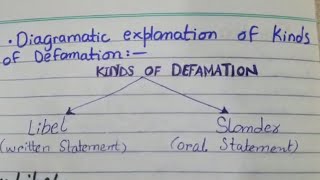 • Diagramatic explanation of Kinds
of Defamation:—
KINDS OF DEFAMATION
Libel Slander
(written Statement) (oral Statement)